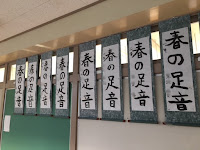 春の足音
春の足音
春の足音
春の足音
春の足音
春の足音
春の足音
春の足音